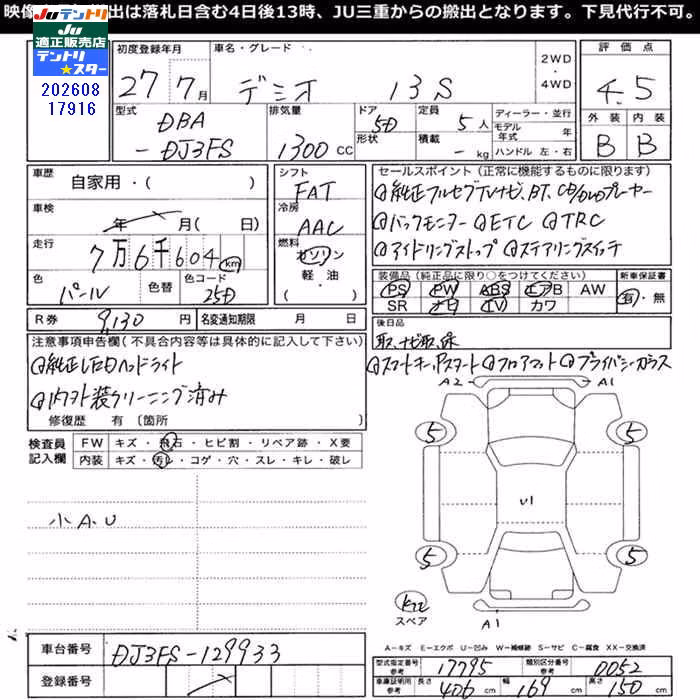 映像 出は落札日含む4日後13時、JU三重からの搬出となります。下見代行不可。
JUテントリ
JU適正販売店
テントリ★スター
202608
17916
初度登録年月 27 7月
車名・グレード デミオ 13S
2WD・4WD
評価点 4.5
外装 B 内装 B
型式 DBA-DJ3FS
排気量 1300 CC
ドア形状 5D
定員 5人
積載 - kg
ディーラー・並行
モデル年式 年
ハンドル 左・右
車歴 自家用・( )
車検 年 月(日)
走行 7万6千604 km
色 パール 色替 色コード 25D
シフト FAT
冷房 AAC
燃料 ガソリン 軽・油 ( )
R券 9,130円 名変通知期限 月 日
セールスポイント(正常に機能するものに限ります)
@純正フルセグTVナビ、BT、CD/DVDプレーヤー
@バックモニター @ETC @TRC
@アイドリングストップ @ステアリングスイッチ
装備品(純正品に限り○をつけてください) 新車保証書
PS PW ABS エアB AW 有・無
SR ナビ TV カワ
後日品
取、ナビ取、保
注意事項申告欄(不具合内容等は具体的に記入して下さい)
@純正LEDヘッドライト
@スマートキー、Pスタート @フロアマット @プライバシーガラス
@内外装クリーニング済み
修復歴 有〔箇所 〕
検査員記入欄
FW キズ・飛石・ヒビ割・リペア跡・X要
内装 キズ・汚レ・コゲ・穴・スレ・キレ・破レ
小A.U
A2 A1
5 5
U1
5 5
スペア
A1
A-キズ E-エクボ U-凹み W-補修跡 S-サビ C-腐食 XX-交換済
車台番号 DJ3FS-129933
登録番号
型式指定番号 参考 17795 類別区分番号 参考 0052
車庫証明用 参考 長さ 406 cm 幅 169 cm 高さ 150 cm